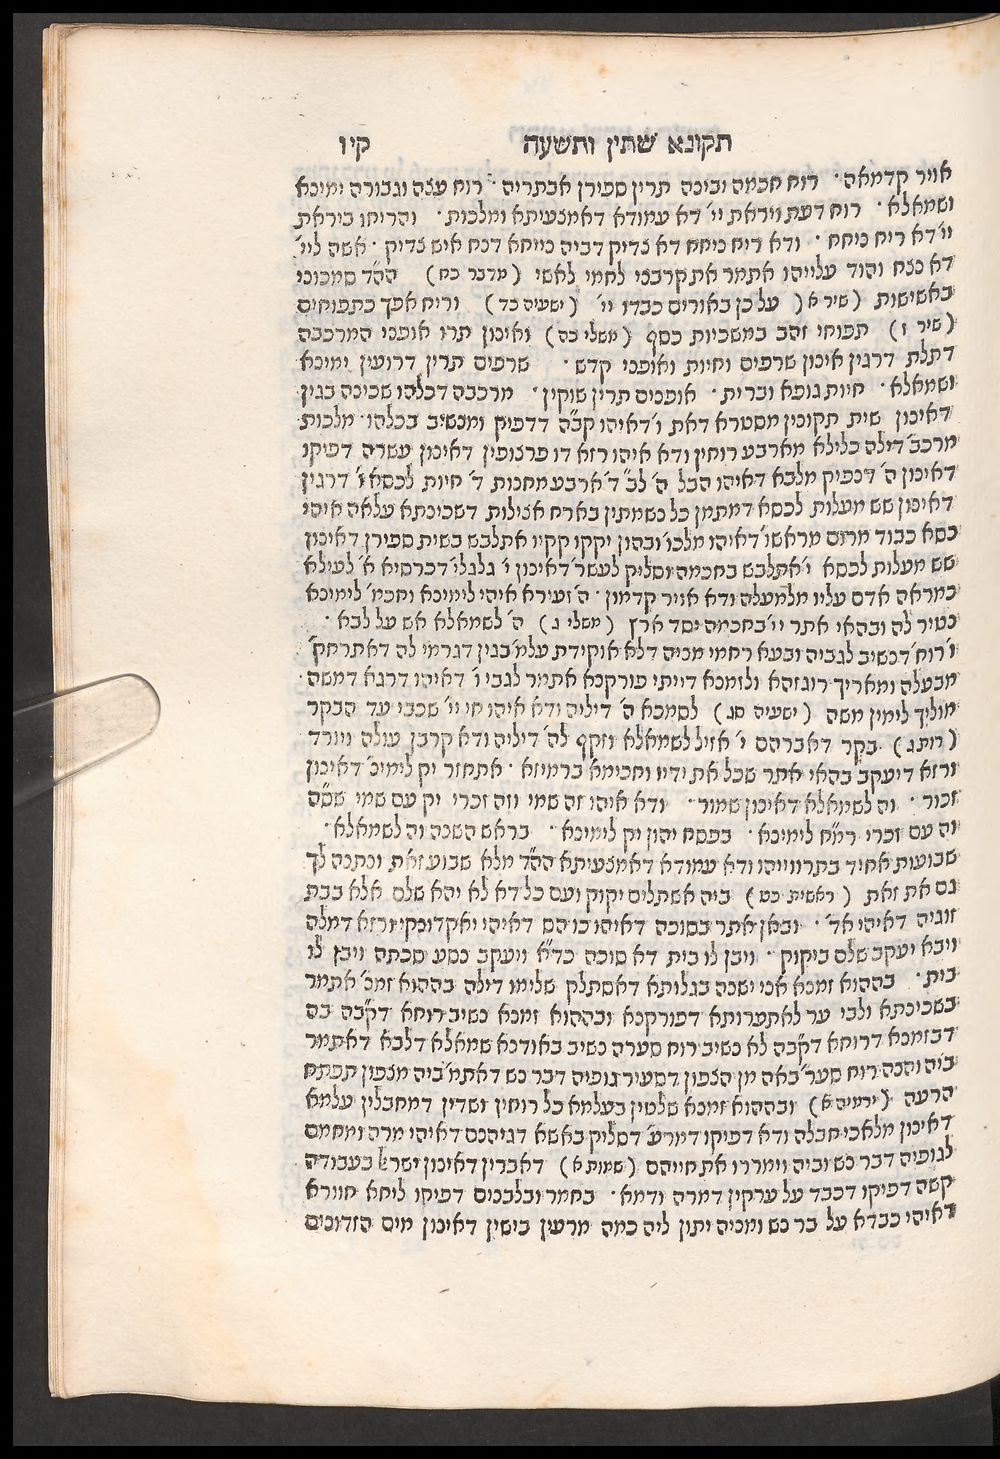 תקונא שתין ותשעה קיו
אויר קדמאה · רוח חכמה ובינה תרין ספירן אבתריה · רוח עצה וגבורה ימינא
ושמאלא · רוח דעת ויראת יי׳ דא עמודא דאמצעיתא ומלכות · והריחו ביראת
יי׳ דא ריח ניחח · ודא ריח ניחח דא צדיק דביה נייחא דנח איש צדיק · אשה ליי׳
דא נצח והוד עלייהו אתמר את קרבני לחמי לאשי (מדבר כח) הה״ד סמכוני
באשישות (שיר א) על כן באורים כבדו יי׳ (ישעיה כד) וריח אפך כתפוחים
(שיר ז) תפוחי זהב במשכיות כסף (משלי כה) ואינון תרו אופני המרכבה
דתלת דרגין אינון שרפים וחיות ואופני קדש · שרפים תרין דרועין ימינא
ושמאלא · חיות גופא וברית · אופנים תרין שוקין · מרכבה דכלהו שכינה בגין
דאינון שית תקונין מסטרא דאת ו׳ דאיהו קב״ה דדפיק ומנשיב בכלהו · מלכות
מרכב׳ דילה כלילא מארבע רוחין ודא איהו רזא דו פרצופין דאינון עשרה דפיקו
דאינון ה׳ דנפיק מלבא דאיהו הבל ה׳ לב ד׳ ארבע מחנות ד׳ חיות לכסא ו׳ דרגין
דאינון שש מעלות לכסא דמתמן כל נשמתין בארח אצילות דשכינתא עלאה איהי
כסא כבוד מרום מראשו׳ דאיהו מלכו׳ ובהון יקקו קקיו אתלבש בשית ספירן דאינון
שש מעלות לכסא ו׳ אתלבש בחכמה וסליק לעשר׳ דאינון ו׳ גלגלו׳ דכרסיא א׳ לעילא
כמראה אדם עליו מלמעלה ודא אויר קדמון · ה׳ זעירא איהי לימינא וחכמ׳ לימינא
נטיר לה ובהאי אתר יי׳ בחכמה יסד ארץ (משלי ג) ה׳ לשמאלא אש על לבא ·
ו׳ רוח׳ דנשיב לגביה ובעא רחמי מניה דלא אוקידת עלמ׳ בגין דגרמי לה דאתרחק׳
מבעלה ומאריך רוגזהא ולזמנא דייתי פורקנא אתמר לגבי ו׳ דאיהו דרגא דמשה ·
מוליך לימין משה (ישעיה סג) לסמכא ה׳ דיליה ודא איהו חי יי׳ שכבי עד הבקר
(רות ג) בקר דאברהם ו׳ אזיל לשמאלא וזקף לה׳ דיליה ודא קרבן עולה ויורד
ורזא דיעקב בהאי אתר שכל את ידיו וחכימא ברמיזא · אתחזר יק לימינ׳ דאינון
זכור · וה לשמאלא דאינון שמור · ודא איהו זה שמי וזה זכרי יק עם שמי שס״ה
וה עם זכרי רמ״ח לימינא · בפסח יהון יק לימינא · בראש השנה וה לשמאלא ·
שבועות אחיד בתרווייהו ודא עמודא דאמצעיתא הה״ד מלא שבוע זאת ונתנה לך
גם את זאת (ראשית כט) ביה אשתלים יקוק ועם כל דא לא יהא שלם אלא בבת
זוגיה דאיהי אד׳ · ובאן אתר בסוכה דאיהו כו הם דאיהי יאקדונקי ורזא דמלה
ויבא יעקב שלם ביקוק · ויבן לו בית דא סוכה כד״א ויעקב נסע סכתה ויבן לו
בית · בההוא זמנא אני ישנה בגלותא דאסתלק שלימו דילה בההוא זמנ׳ אתמר
בשכינתא ולבי ער לאתערותא דפורקנא ובההוא זמנא נשיב רוחא דקב״ה בה
דבזמנא דרוחא דקב״ה לא נשיב רוח סערה נשיב באודנא שמאלא דלבא דאתמר
ביה והנה רוח סער׳ באה מן הצפון דסעיר גופיה דבר נש דאתמ׳ ביה מצפון תפתח
הרעה (ירמיה א) ובההוא זמנא שלטין בעלמא כל רוחין ושדין דמחבלין עלמא
דאינון מלאכי חבלה ודא דפיקו דמרע׳ דסליק באשא דגיהנם דאיהי מרה ומחמם
לגופיה דבר נש וביה וימררו את חייהם (שמות א) דאברין דאינון ישר׳ בעבודה
קשה דפיקו דכבד על ערקין דמרה ודמא · בחמר ובלבנים דפיקו ליחא חוורא
דאיהי כבדא על בר נש ומניה יתון ליה כמה מרעין בישין דאינון מים הזדונים